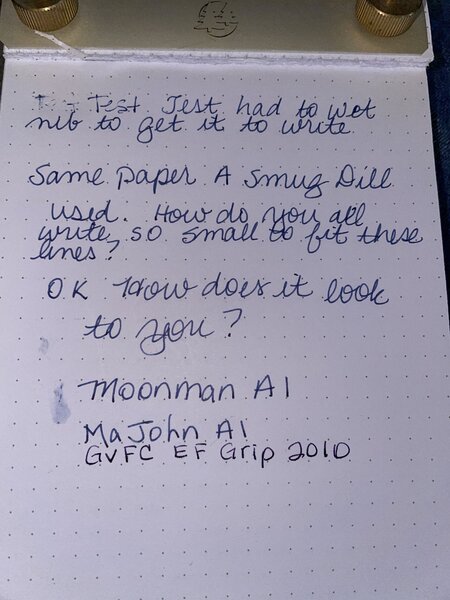 Te Test Test had to wet
nib to get it to write
Same paper A Smug Dill
used. How do you all
write so small to fit these
lines?
OK How does it look
to you?
Moonman A1
MaJohn A1
GVFC EF Grip 2010